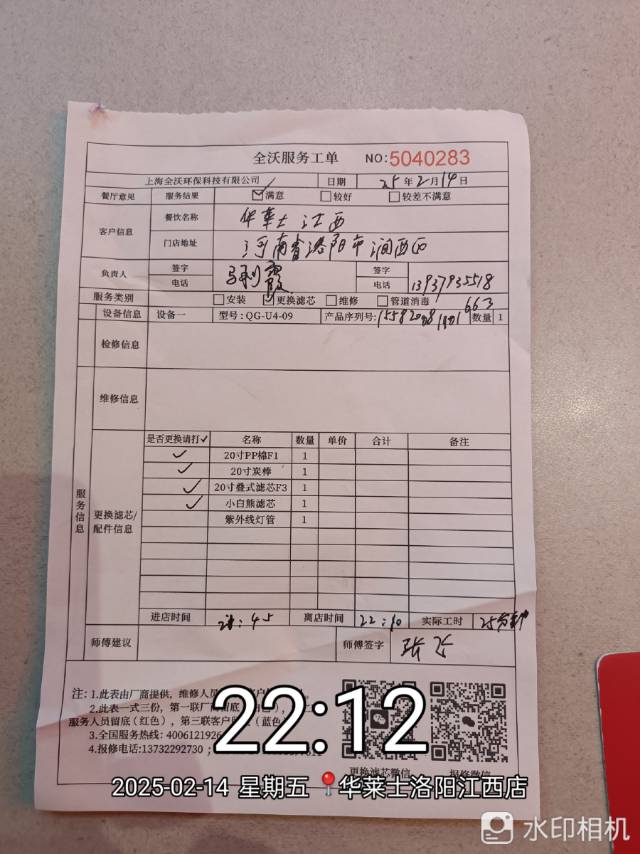 全沃服务工单 NO:5040283
上海全沃环保科技有限公司 日期 25年2月14日
餐厅意见 服务结果 ☑满意 □较好 □较差不满意
客户信息 餐饮名称 华莱士江西
门店地址 河南省洛阳市涧西区
负责人 签字 签字
电话 电话 13937935518
服务类别 □安装 ☑更换滤芯 □维修 □管道消毒 663
设备信息 设备一 型号:QG-U4-09 产品序列号: 数量 1
检修信息
维修信息
服务信息
更换滤芯/配件信息
是否更换请打✓ 名称 数量 单价 合计 备注
✓ 20寸PP棉F1 1
✓ 20寸炭棒 1
✓ 20寸叠式滤芯F3 1
✓ 小白熊滤芯 1
紫外线灯管 1
进店时间 :45 离店时间 22:10 实际工时 25分钟
师傅建议 师傅签字
注: 1.此表由厂商提供, 维修人员
2.此表一式三份, 第一联厂商留底
服务人员留底(红色), 第三联客户 (蓝色)
3.全国服务热线: 4006121926
4.报修电话:13732292730 ;
更换滤芯微信 报修微信
22:12
2025-02-14 星期五 华莱士洛阳江西店
水印相机